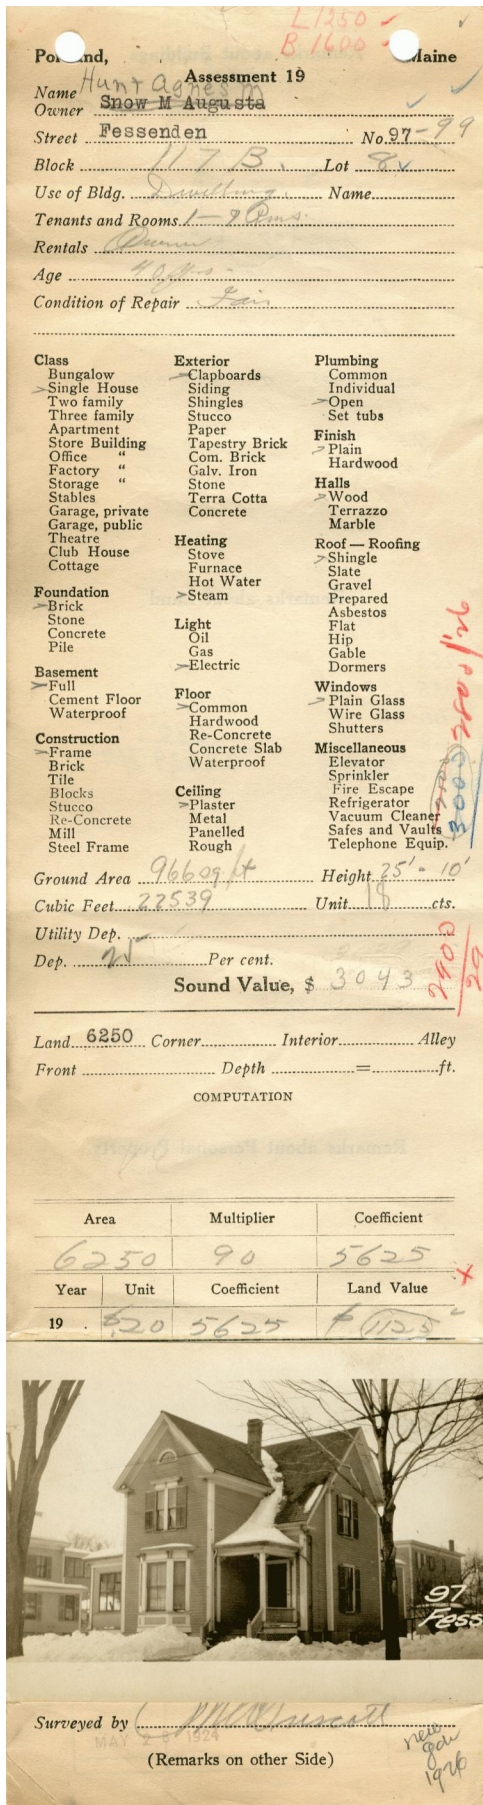 L 1250
B 1600
Portland, Maine
Assessment 19
Name Hunt Agnes M
Owner Snow M Augusta
Street Fessenden No. 97-99
Block 117 B. Lot 8
Use of Bldg. Dwelling. Name
Tenants and Rooms 1 - 8 Rms.
Rentals Owner
Age 40 yrs -
Condition of Repair Fair
Class
Bungalow
Single House
Two family
Three family
Apartment
Store Building
Office "
Factory "
Storage "
Stables
Garage, private
Garage, public
Theatre
Club House
Cottage
Foundation
Brick
Stone
Concrete
Pile
Basement
Full
Cement Floor
Waterproof
Construction
Frame
Brick
Tile
Blocks
Stucco
Re-Concrete
Mill
Steel Frame
Exterior
Clapboards
Siding
Shingles
Stucco
Paper
Tapestry Brick
Com. Brick
Galv. Iron
Stone
Terra Cotta
Concrete
Heating
Stove
Furnace
Hot Water
Steam
Light
Oil
Gas
Electric
Floor
Common
Hardwood
Re-Concrete
Concrete Slab
Waterproof
Ceiling
Plaster
Metal
Panelled
Rough
Plumbing
Common
Individual
Open
Set tubs
Finish
Plain
Hardwood
Halls
Wood
Terrazzo
Marble
Roof — Roofing
Shingle
Slate
Gravel
Prepared
Asbestos
Flat
Hip
Gable
Dormers
Windows
Plain Glass
Wire Glass
Shutters
Miscellaneous
Elevator
Sprinkler
Fire Escape
Refrigerator
Vacuum Cleaner
Safes and Vaults
Telephone Equip.
Ground Area 966 sq ft Height 25' - 10'
Cubic Feet 22539 Unit 18 cts.
Utility Dep.
Dep. 25 Per cent.
Sound Value, $ 3043
2900
Land 6250 Corner Interior Alley
Front Depth = ft.
COMPUTATION
Area Multiplier Coefficient
6250 90 5625
Year Unit Coefficient Land Value
19 . $.20 5625 $ 1125
97
Fess
Surveyed by
MAY 28 1924
(Remarks on other Side)
new
gar
1926